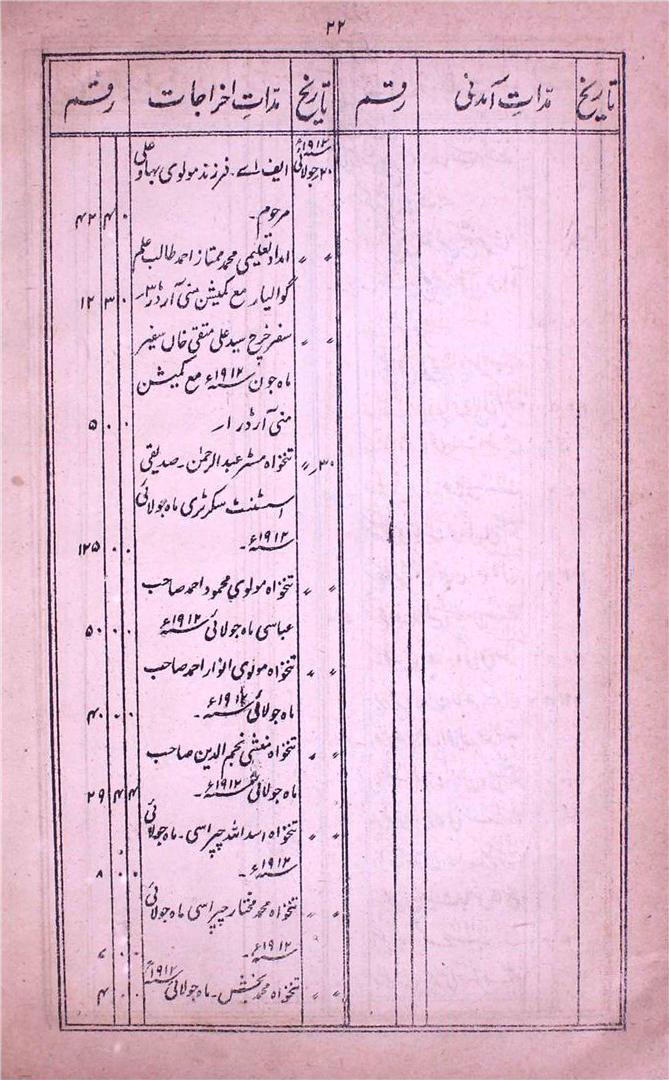 ۲۲
تاریخ مدّاتِ آمدنی رقم تاریخ مدّاتِ اخراجات رقم
۲۰ جولائی ۱۹۱۲ء ایف اے۔ فرزند مولوی بہاو علی
مرحوم۔ ۰ ۴ ۴۲
〃 〃 امداد تعلیمی محمد ممتاز احمد طالب علم
گوالیار مع کمیشن منی آرڈر ۳؍ ۰ ۳ ۱۲
〃 〃 سفر خرچ سید علی متقی خاں سفیر
ماہ جون ۱۹۱۲ء مع کمیشن
منی آرڈر ۱؍ ۰ ۰ ۵
۳۰؍ 〃 تنخواہ مسٹر عبدالرحمٰن۔ صدیقی
اسسٹنٹ سکرٹری ماہ جولائی
۱۹۱۲ء۔ ۰ ۰ ۱۲۵
〃 〃 تنخواہ مولوی محمود احمد صاحب
عباسی ماہ جولائی ۱۹۱۲ء ۰ ۰ ۵۰
〃 〃 تنخواہ مولوی انوار احمد صاحب
ماہ جولائی ۱۹۱۲ء۔ ۰ ۰ ۴۰
〃 〃 تنخواہ منشی نجم الدین صاحب
ماہ جولائی ۱۹۱۲ء۔ ۴ ۴ ۲۹
〃 〃 تنخواہ اسد اللہ چپراسی۔ ماہ جولائی
۱۹۱۲ء۔ ۰ ۰ ۸
〃 〃 تنخواہ محمد مختار چپراسی ماہ جولائی
۱۹۱۲ء۔ ۰ ۰ ۷
〃 〃 تنخواہ محمد بخش۔ ماہ جولائی ۱۹۱۲ء ۰ ۰ ۴